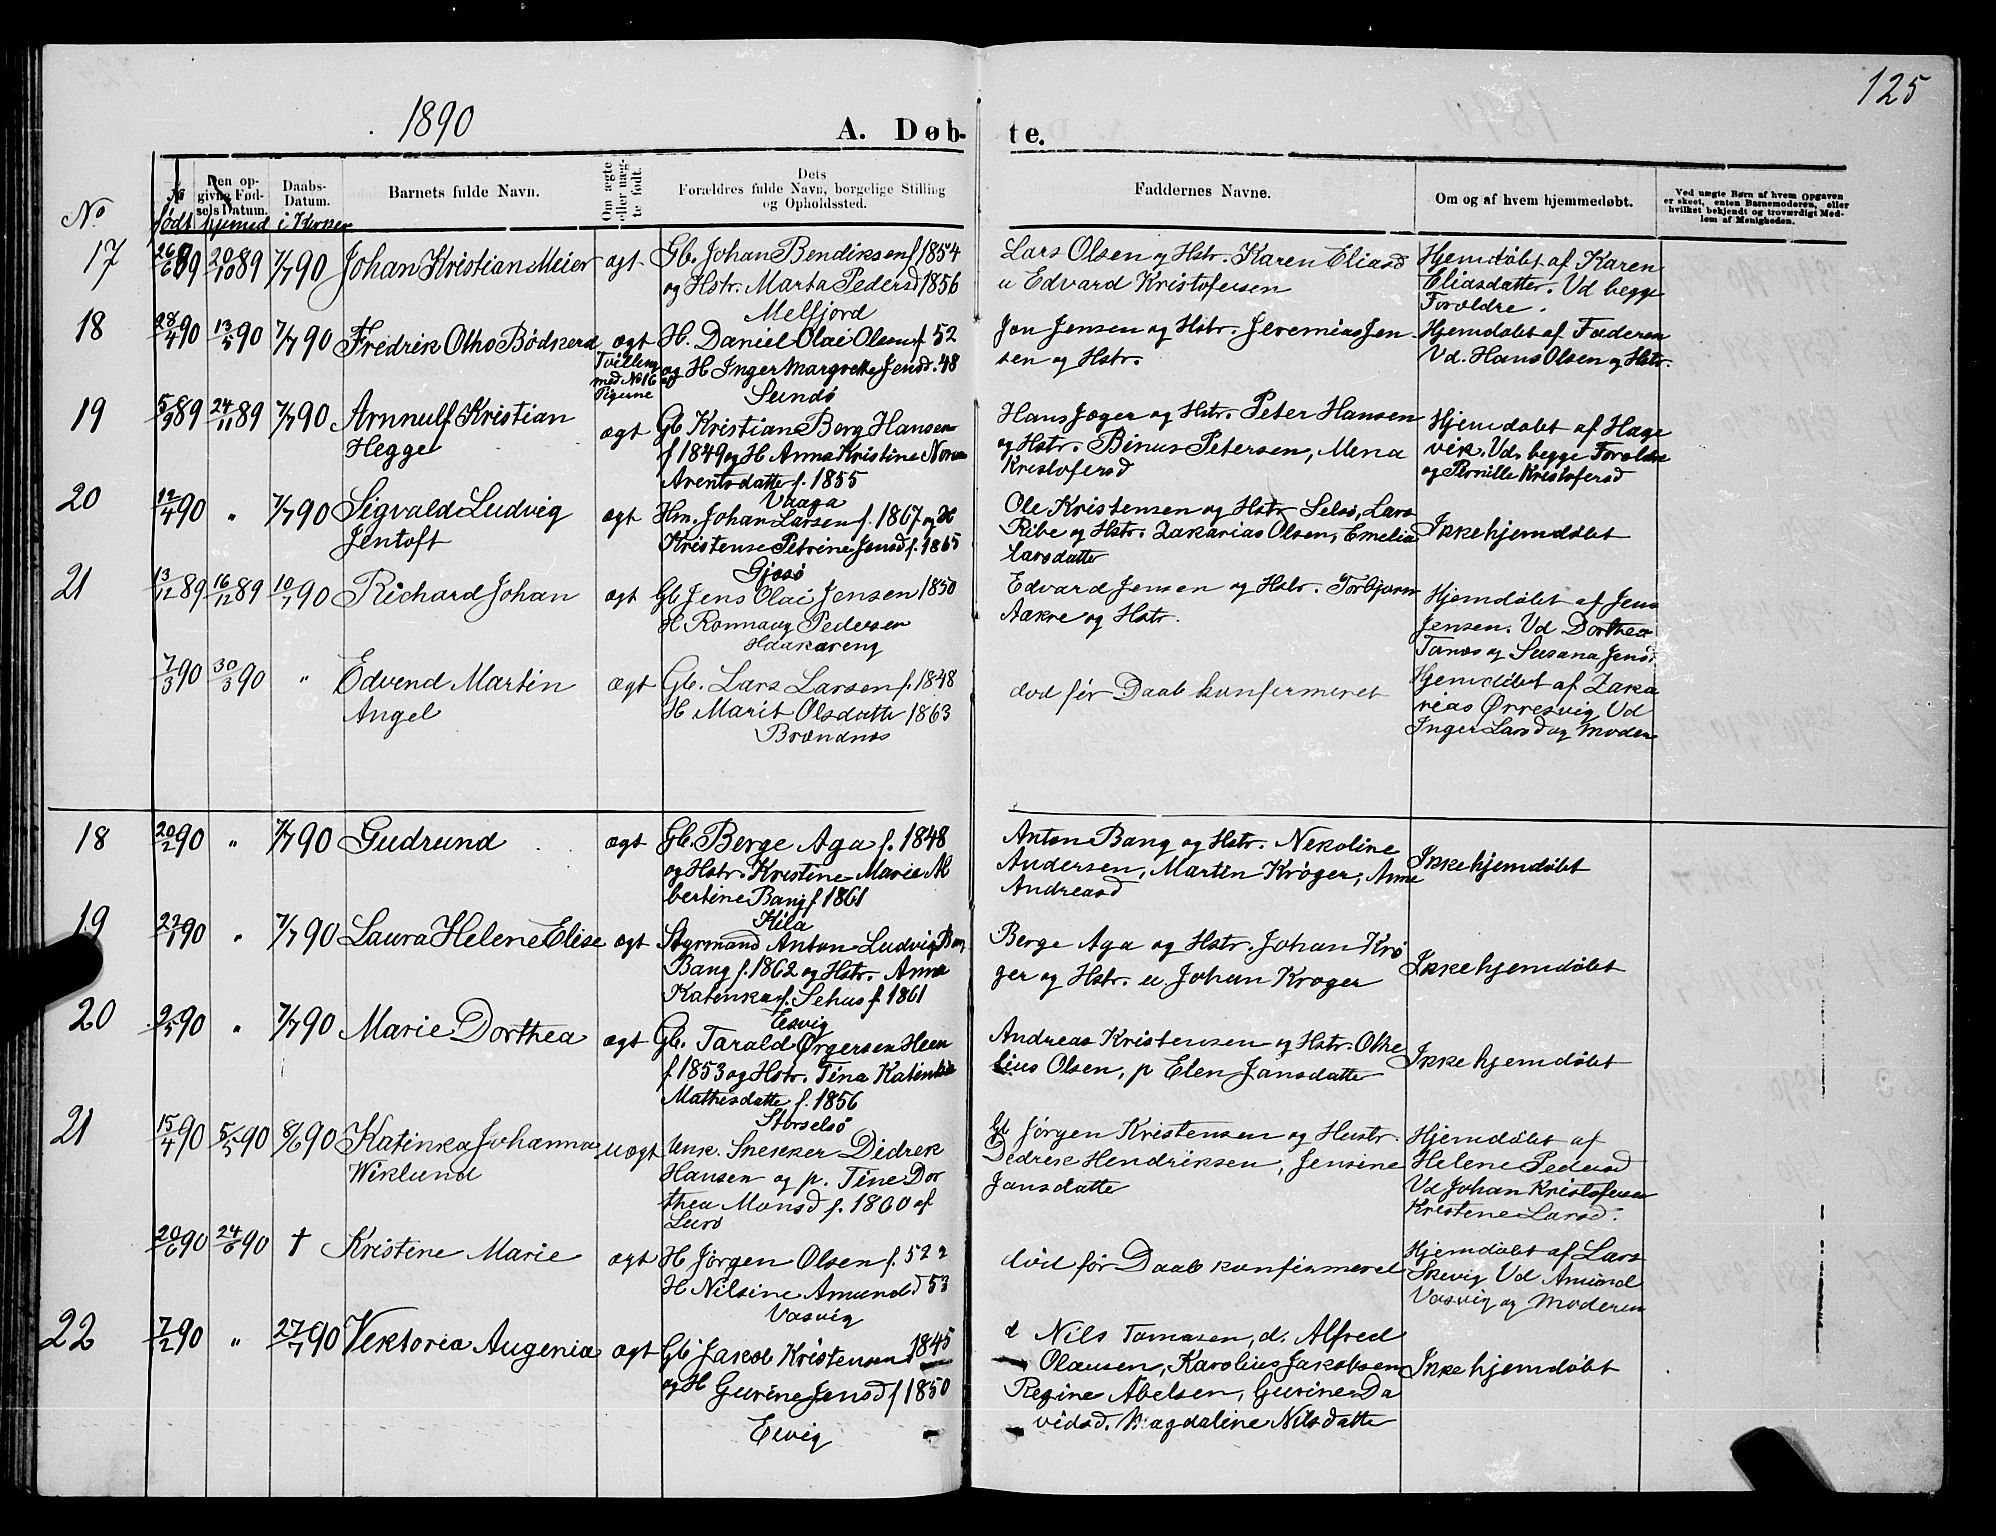 125
1890
A. Døb-
te.
No
No
født
Den op-
givne Fød-
sels Datum.
hjemd
Daabs-
Datum.
i Kirken
Barnets fulde Navn.
Om ægte
eller uæg-
te født.
Dets
Forældres fulde Navn, borgelige Stilling
og Opholdssted.
Faddernes Navne.
Om og af hvem hjemmedøbt.
Ved uægte Børn af hvem Opgaven
er skeet, enten Barnemoderen, eller
hvilket bekjendt og troværdigt Med-
lem af Menigheden.
17
26/6 89
20/10 89
7/7 90
Johan Kristian Meier
ægt
Gb. Johan Bendiksen f 1854
og Hstr. Marta Pedersd 1856
Melfjord
Lars Olsen og Hstr. Karen Eliasd
u Edvard Kristofersen
Hjemdøbt af Karen
Eliasdatter. Vd begge
Forældre.
18
28/4 90
13/5 90
7/7 90
Fredrik Otho Bødkerd
ægt
Tvilling
med No 16
Pigerne
H. Daniel Olai Olsen f 52
og H Inger Margrethe Jensd. 48
Sundø
Jon Jensen og Hstr. Jeremias Jen
sen og Hstr.
Hjemdøbt af Faderen
Vd. Hans Olsen og Hstr.
19
5/9 89
24/11 89
7/7 90
Arnnulf Kristian
Hegge
ægt
Gb Kristian Berg Hansen
f 1849 og H Anna Kristine Nora
Arentsdatter f. 1855
Vaaga
Hans Jæger og Hstr. Peter Hansen
og Hstr. Binus Petersen, Mena
Kristofersd
Hjemdøbt af Hage
vik. Vd. begge Forældre
og Pernille Kristofersd
20
12/4 90
"
7/7 90
Sigvald Ludvig
Jentoft
ægt
Hm. Johan Larsen f. 1867 og H
Kristense Petrine Jensd f. 1865
Gjesø
Ole Kristensen og Hstr Selsø, Lars
Ribe og Hstr. Zakarias Olsen, Emelia
Larsdatter
Ikke hjemdøbt
21
13/12 89
16/12 89
10/7 90
Richard Johan
ægt
Gb Jens Olai Jensen 1850
H Ronnaug Pedersen
Haakareng
Edvard Jensen og Hstr. Torbjørn
Aakre og Hstr.
Hjemdøbt af Jens
Jensen. Vd Dorthea
Tønes og Susana Jensd
7/3 90
30/3 90
"
Edvend Martin
Angel
ægt
Gb. Lars Larsen f. 1848
H Marit Olsdatter 1863
Brændnes
død før Daab konfirmeret
Hjemdøbt af Zaka
rias Ørresvig Vd
Inger Larsd og Moder
18
20/2 90
"
7/7 90
Gudrund
ægt
Gb. Berge Aga f. 1848
og Hstr. Kristine Marie Al
bertine Bang f 1861
Kila
Anton Bang og Hstr. Nekoline
Andersen, Martin Krøger, Anne
Andreasd
Ikke hjemdøbt
19
"
7/7 90
Laura Helene Elise
ægt
Styrmand Anton Ludvig
Bang f. 1862 og Hstr. Anna
Katinka f. Sehus f. 1861
Esvig
Berge Aga og Hstr. Johan Krø
ger og Hstr. u. Johan Krøger
Ikke hjemdøbt
20
2/5 90
"
7/7 90
Marie Dorthea
ægt
Gb. Tarald Ørgersen Heen
f. 1853 og Hstr. Tina Katinka
Mathisdatter f. 1856
Storselsø
Andreas Kristensen og Hstr. Othe
lius Olsen, p Elen Jansdatter
Ikke hjemdøbt
21
15/4 90
5/5 90
8/6 90
Katinka Johanna
Wiklund
uægt
Unk. Snekker Didrek
Hansen og p. Tine Dor
thea Monsd f. 1860 af
Lurø
Gb Jørgen Kristensen og Hustr.
Didrek Hendriksen, Jensine
Jansdatter
Hjemdøbt af
Helene Pedersd
Vd Johan Kristofersen
Kristene Larsd.
20/6 90
24/6 90
†
Kristine Marie
ægt
H Jørgen Olsen f. 52
H Nilsine Amundsd 53
Vasvig
død før Daab konfirmeret
Hjemdøbt af Lars
Skevig Vd Amund
Vasvig og Moderen
22
7/2 90
"
27/7 90
Viktoria Augenia
ægt
Gb Jakob Kristensen 1845
og H Gurine Jensd f 1850
Eivig
Nils Tomasen, d. Alfred
Olausen, Karolius Jakobsen
Regine Abelsen, Gurine Da
vidsd. Magdaline Nilsdatter
Ikke hjemdøbt